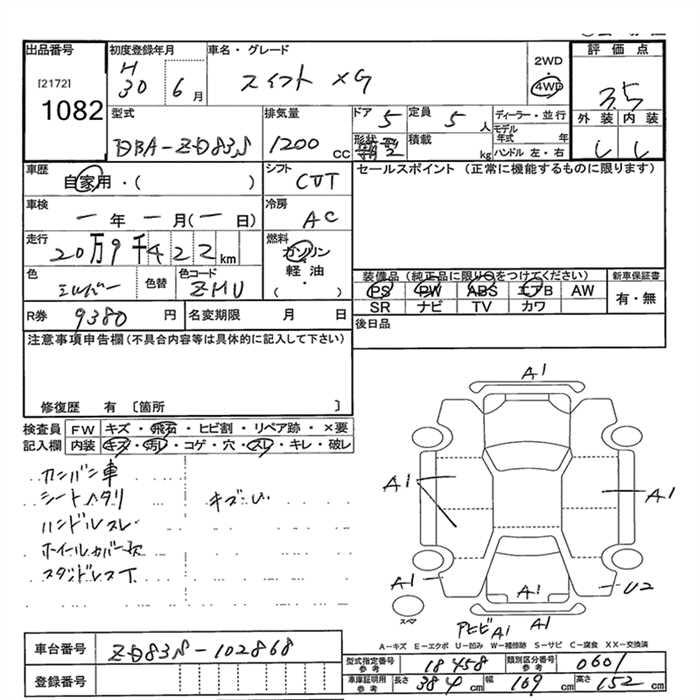 出品番号 初度登録年月 車名・グレード 2WD 評価点
[2172] H 30 6月 スイフト XG 4WD 3.5
1082
型式 排気量 ドア 定員 ディーラー・並行 外装 内装
DBA-ZD83S 1200cc 5 5人 モデル年式 年
形状 積載 kg ハンドル 左・右
車歴 シフト セールスポイント (正常に機能するものに限ります)
自家用・( ) CVT
車検 冷房
一年 一月(一日) AC
走行 燃料
20万9千422km ガソリン・軽油・( )
色 色替 色コード 装備品 (純正品に限り○をつけてください) 新車保証書
シルバー ZMU PS PW ABS エアB AW 有・無
SR ナビ TV カワ
R券 9380円 名変期限 月 日 後日品
注意事項申告欄 (不具合内容等は具体的に記入して下さい)
修復歴 有 〔箇所 〕
検査員記入欄 FW キズ・飛石・ヒビ割・リペア跡・×要
内装 キズ・汚レ・コゲ・穴・スレ・キレ・破レ
カンバン車
シートヘタリ キズ
ハンドルスレ
ホイールカバー欠
スタッドレス
A1
A1 A1
A1 A1 U2
スペア
A1
A1
A-キズ E-エクボ U-凹み W-補修跡 S-サビ C-腐食 XX-交換済
車台番号 ZD83S-102868
型式指定番号 参考 18458 類別区分番号 参考 0601
登録番号
車庫証明用 参考 長さ 384cm 幅 169cm 高さ 152cm